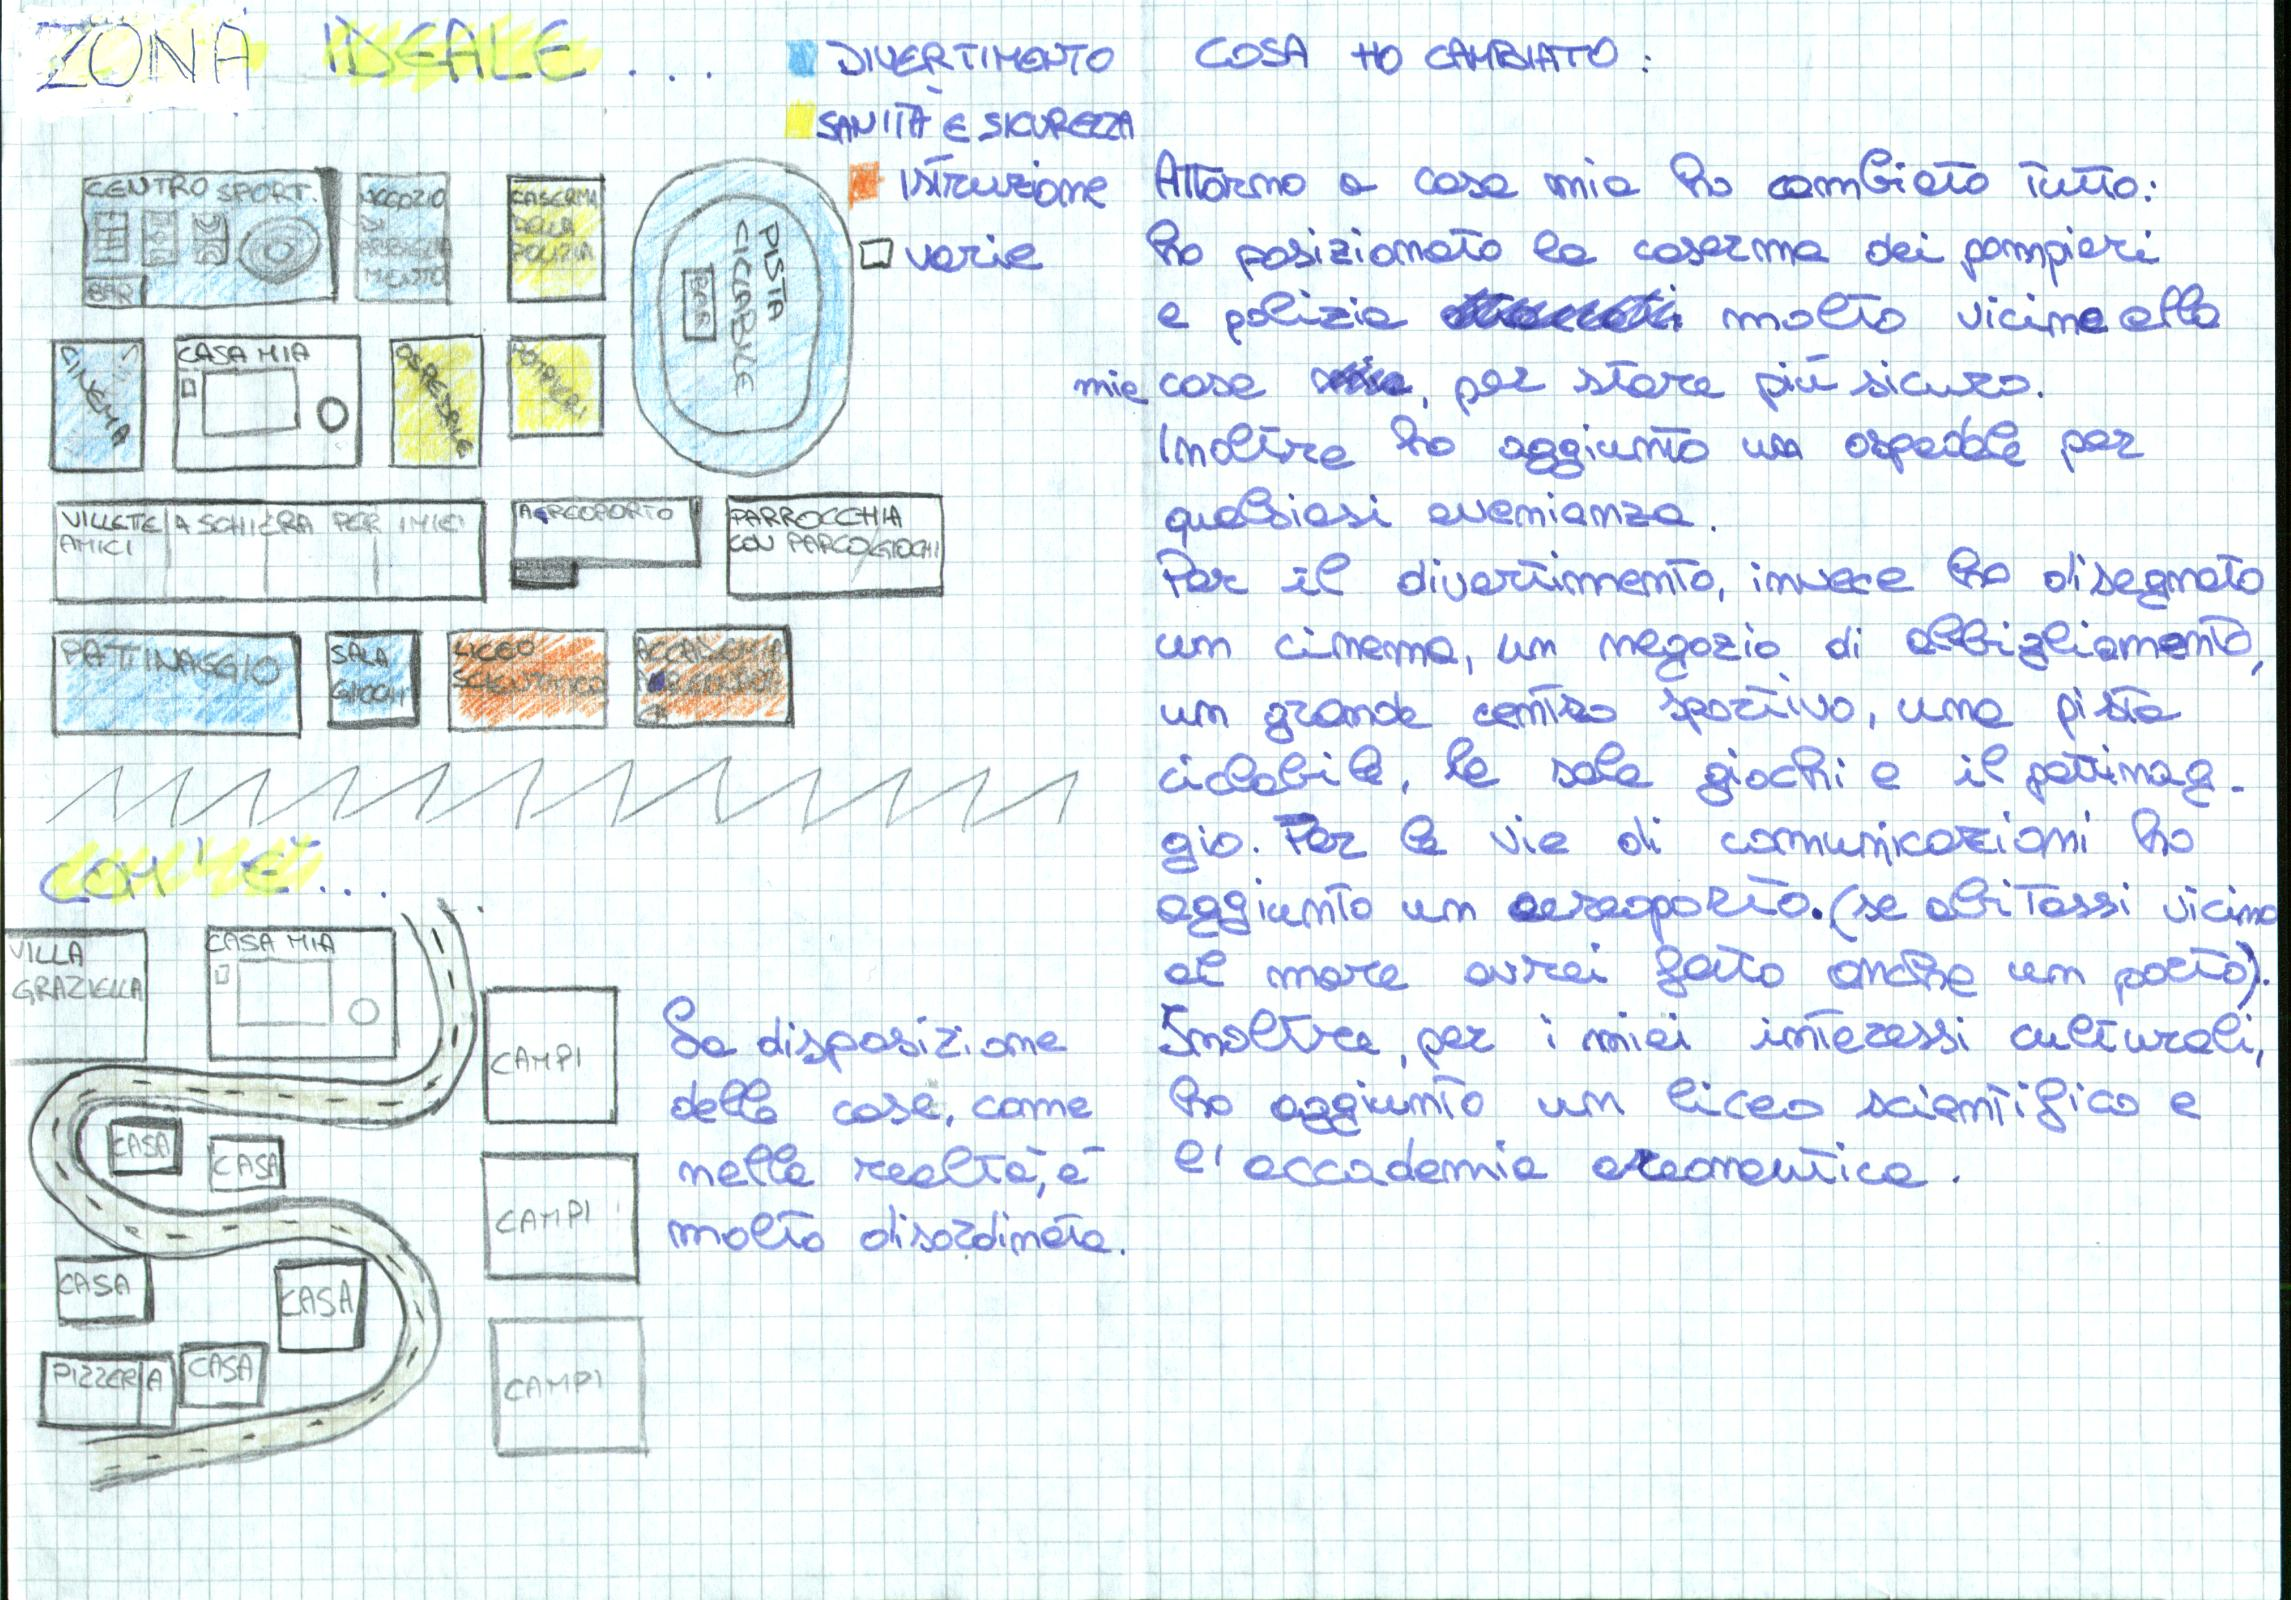 ZONA IDEALE...
DIVERTIMENTO
SANITÀ E SICUREZZA
ISTruzione
varie
CENTRO SPORT.
BAR
NEGOZIO
DI
ABBIGLIA
MENTO
CASERMA
DELLA
POLIZIA
PISTA
CICLABILE
BAR
CINEMA
CASA MIA
OSPEDALE
POMPIERI
VILLETE A SCHIERA PER I MIEI
AMICI
AEREOPORTO
PARROCCHIA
CON PARCO GIOCHI
PATTINAGGIO
SALA
GIOCHI
LICEO
SCIENTIFICO
ACCADEMIA
COM'È...
VILLA
GRAZIELLA
CASA MIA
CAMPI
CASA
CASA
CAMPI
CASA
CASA
PIZZERIA
CASA
CAMPI
La disposizione
delle case, come
nella realtà, è
molto disordinata.
COSA HO CAMBIATO:
Attorno a casa mia ho cambiato tutto:
ho posizionato la caserma dei pompieri
e polizia molto vicine alla
mia casa, per stare più sicuro.
Inoltre ho aggiunto un ospedale per
qualsiasi evenianza.
Per il divertimento, invece ho disegnato
un cinema, un negozio di abbigliamento,
un grande centro sportivo, una pista
ciclabile, la sala giochi e il pattinag-
gio. Per le vie di comunicazioni ho
aggiunto un aereoporto. (se abitassi vicino
al mare avrei fatto anche un porto).
Inoltre, per i miei interessi culturali,
ho aggiunto un liceo scientifico e
l'accademia areonautica.